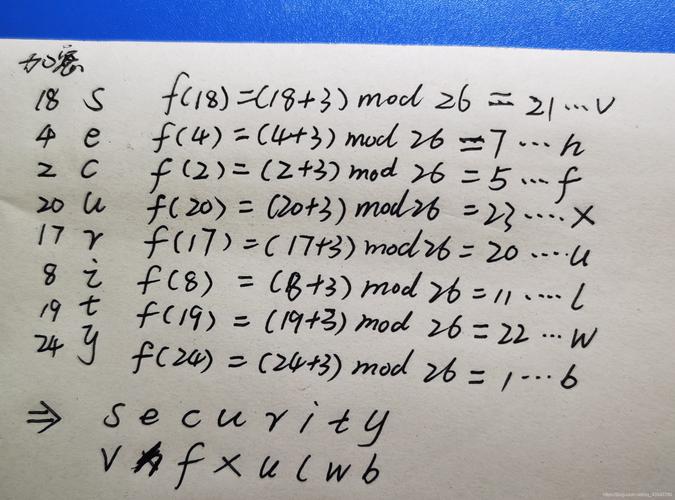 加密
18 s f(18)=(18+3) mod 26 = 21 ... v
4 e f(4)=(4+3) mod 26 = 7 ... h
2 c f(2)=(2+3) mod 26 = 5 ... f
20 u f(20)=(20+3) mod 26 = 23 .... x
17 r f(17)=(17+3) mod 26 = 20 .... u
8 i f(8) = (8+3) mod 26 = 11 .... l
19 t f(19) = (19+3) mod 26 = 22 ... w
24 y f(24) = (24+3) mod 26 = 1 ... b
⇒ s e c u r i t y
v h f x u l w b